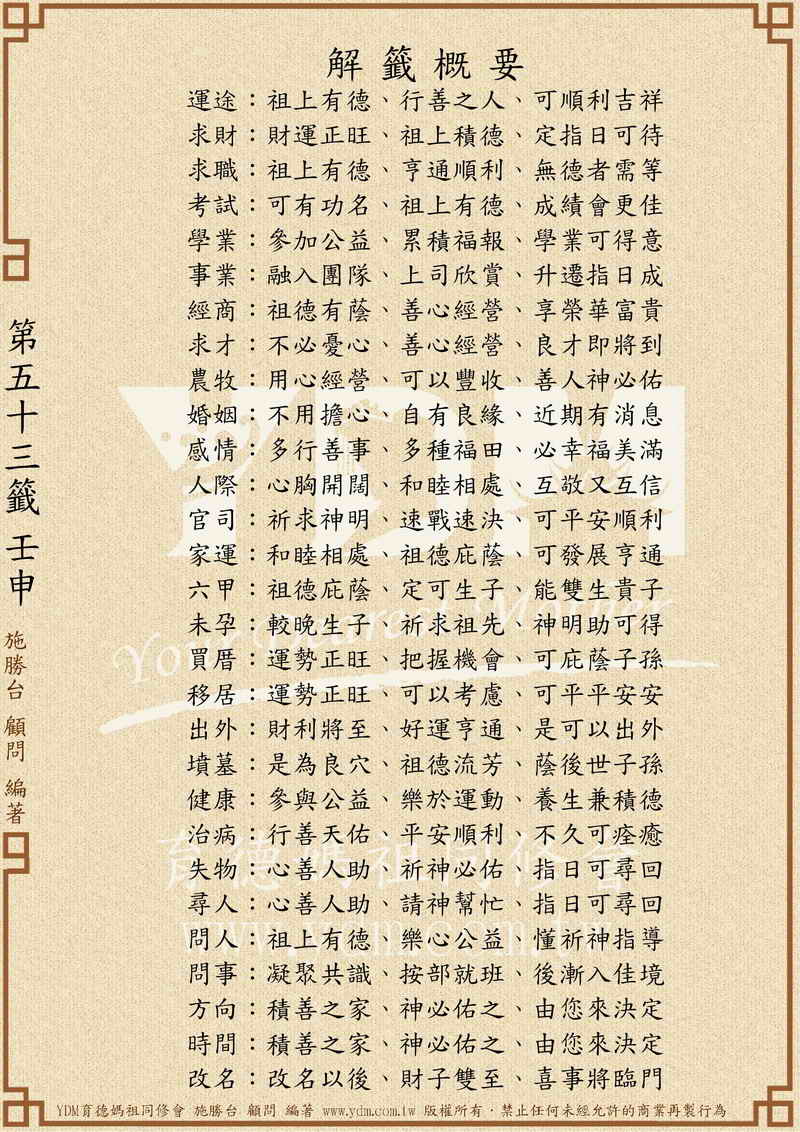 解籤概要
運途：祖上有德、行善之人、可順利吉祥
求財：財運正旺、祖上積德、定指日可待
求職：祖上有德、亨通順利、無德者需等
考試：可有功名、祖上有德、成績會更佳
學業：參加公益、累積福報、學業可得意
事業：融入團隊、上司欣賞、升遷指日成
經商：祖德有蔭、善心經營、享榮華富貴
求才：不必憂心、善心經營、良才即將到
農牧：用心經營、可以豐收、善人神必佑
婚姻：不用擔心、自有良緣、近期有消息
感情：多行善事、多種福田、必幸福美滿
人際：心胸開闊、和睦相處、互敬又互信
官司：祈求神明、速戰速決、可平安順利
家運：和睦相處、祖德庇蔭、可發展亨通
六甲：祖德庇蔭、定可生子、能雙生貴子
未孕：較晚生子、祈求祖先、神明助可得
買厝：運勢正旺、把握機會、可庇蔭子孫
移居：運勢正旺、可以考慮、可平平安安
出外：財利將至、好運亨通、是可以出外
墳墓：是為良穴、祖德流芳、蔭後世子孫
健康：參與公益、樂於運動、養生兼積德
治病：行善天佑、平安順利、不久可痊癒
失物：心善人助、祈神必佑、指日可尋回
尋人：心善人助、請神幫忙、指日可尋回
問人：祖上有德、樂心公益、懂祈神指導
問事：凝聚共識、按部就班、後漸入佳境
方向：積善之家、神必佑之、由您來決定
時間：積善之家、神必佑之、由您來決定
改名：改名以後、財子雙至、喜事將臨門
第五十三籤 壬申
施勝台 顧問 編著
YDM
Your Dearest Mother
育德媽祖同修會
www.ydm.com.tw
YDM育德媽祖同修會 施勝台 顧問 編著 www.ydm.com.tw 版權所有．禁止任何未經允許的商業再製行為